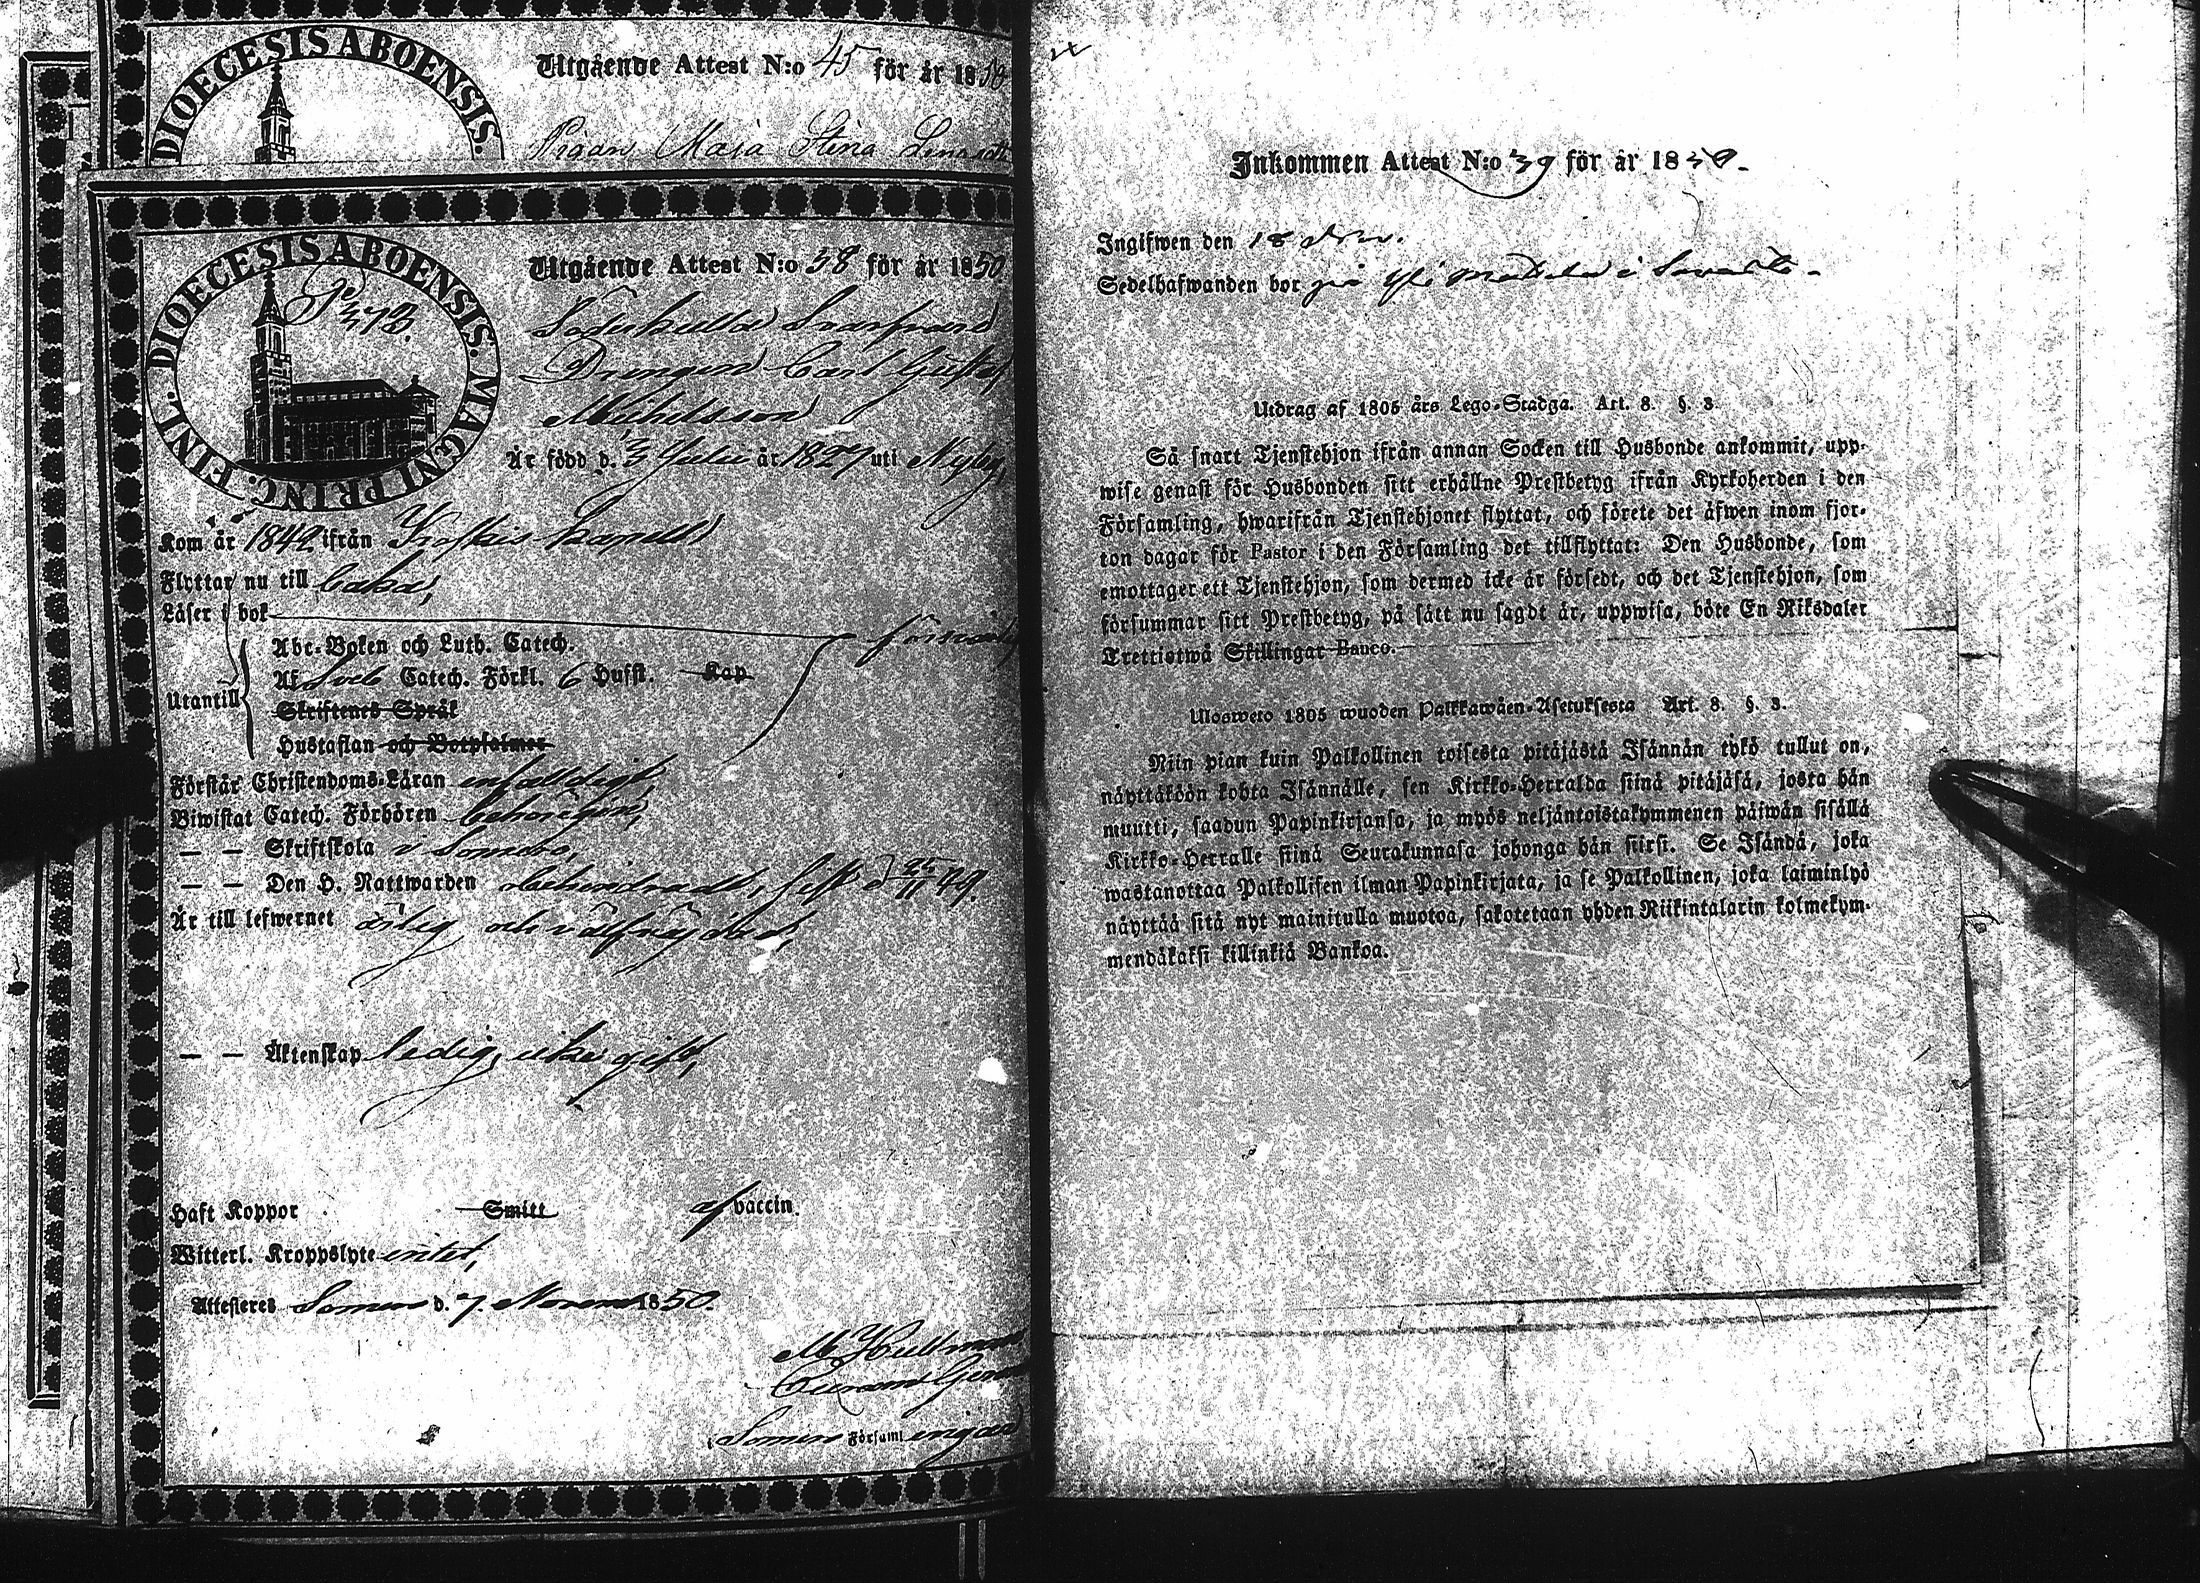 DIOECESIS ABOENSIS.
Utgående Attest N:o 45 för år 1850
Pigan Maja Stina
DIOECESIS ABOENSIS. MAGNI PRINC. FINL.
Utgående Attest N:o 38 för år 1850
Drängen Carl Gustaf
Michelsson
Är född d. 3 Julii år 1827 uti Nyby,
Kom år 1849 ifrån Koskis Kapell
Flyttar nu till
Läser i bok försvarl
Utantill
Abc-Boken och Luth. Catech.
Af Sveb Catech. Förkl. 6 Hufst. Kap
Skriftenes Språk
Hustaflan och Botpsalmer
Förstår Christendoms-Läran enfaldigt,
Biwistat Catech. Förhören behörigen,
— — Skriftskola i Somero,
— — Den H. Nattwarden obehindradt, sist d 25/11 49.
Är till lefwernet ärlig och välfrejdad,
— — Äktenskap ledig, icke gift,
Haft Koppor Smitt af vaccin.
Witterl. Kroppslyte intet,
Attesteras Somero d. 7. Novemb 1850.
M Hullman
Somero Församl
Inkommen Attest N:o 39 för år 1850.
Ingifwen den 18
Sedelhafwanden bor på i
Utdrag af 1805 års Lego-Stadga. Art. 8. §. 3.
Så snart Tjenstehjon ifrån annan Socken till Husbonde ankommit, upp-
wise genast för Husbonden sitt erhållne Prestbetyg ifrån Kyrkoherden i den
Församling, hwarifrån Tjenstehjonet flyttat, och förete det äfwen inom fjor-
ton dagar för Pastor i den Församling det tillflyttat: Den Husbonde, som
emottager ett Tjenstehjon, som dermed icke är försedt, och det Tjenstehjon, som
försummar sitt Prestbetyg, på sätt nu sagdt är, uppwisa, böte En Riksdaler
Trettiotwå Skillingar Banco.
Ulosweto 1805 wuoden Palkkawäen-Asetuksesta Art. 8. §. 3.
Niin pian kuin Palkollinen toisesta pitäjästä Isännän tykö tullut on,
näyttäköön kohta Isännälle, sen Kirkko-Herralda siinä pitäjäsä, josta hän
muutti, saadun Papinkirjansa, ja myös neljäntoistakymmenen päiwän sisällä
Kirkko-Herralle siinä Seurakunnasa johonga hän siirsi. Se Isändä, joka
wastanottaa Palkollisen ilman Papinkirjata, ja se Palkollinen, joka laiminlyö
näyttää sitä nyt mainitulla muotoa, sakotetaan yhden Riikintalarin kolmekym-
mendäkaksi killinkiä Bankoa.